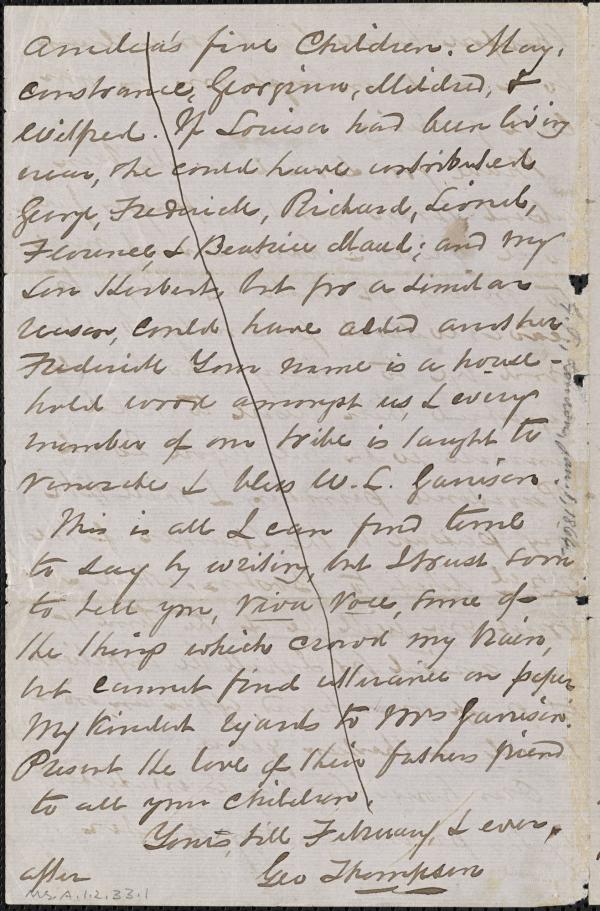 Amelia's five Children. May,
Constance, Georgina, Mildred, &
Wilfred. If Louisa had been living
near, she could have contributed
George, Frederick, Richard, Lionel,
Florence, & Beatrice Maud; and my
Son Herbert, but for a similar
reason, could have added another
Frederick Your name is a house-
hold word amongst us, & every
member of our tribe is taught to
venerate & bless W. L. Garrison.
This is all I can find time
to say by writing, but I trust soon
to tell you, viva voce, some of
the things which crowd my brain,
but cannot find utterance on paper
My kindest regards to Mrs Garrison.
Present the love of their fathers friend
to all your children.
Yours, till February, & ever,
after
Geo Thompson
Ms. A. 1. 2. 33. 1